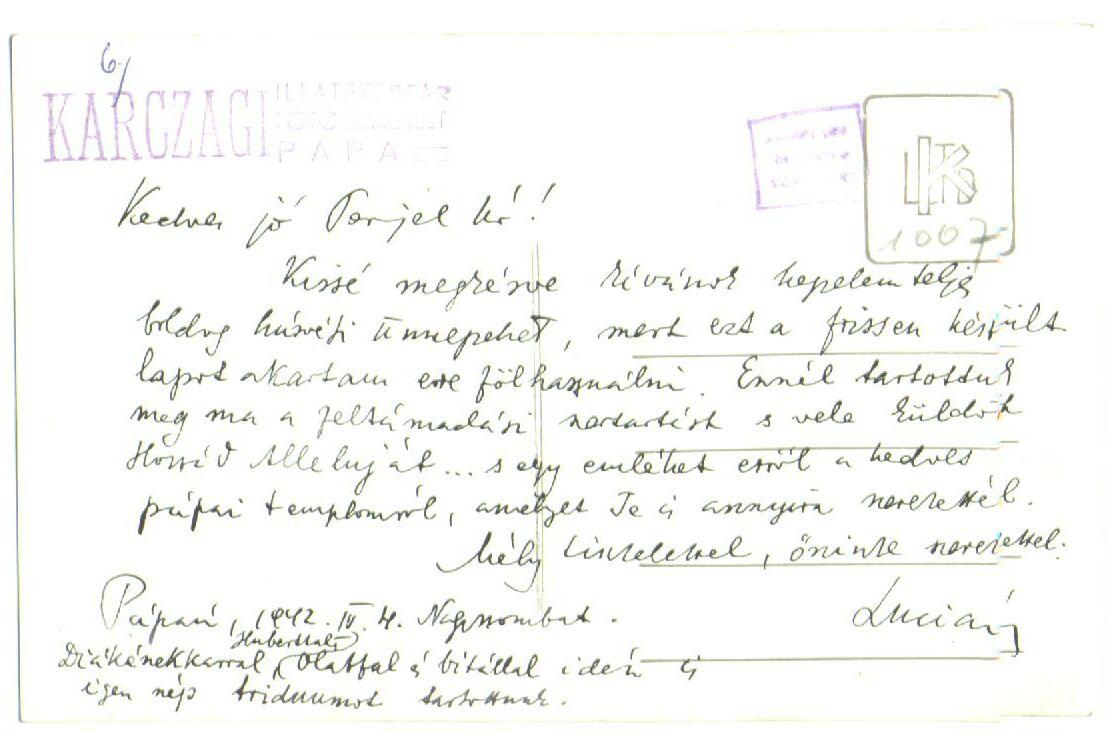 6/
KARCZAGI ILLATSZERTÁR
PÁPA
1007
Kedves jó Perjel Úr!
Kissé megkésve kívánok kegyelemteljes
boldog húsvéti ünnepeket, mert ezt a frissen készült
lapot akartam erre fölhasználni. Ennél tartottuk
meg ma a feltámadási szertartást s vele küldök
Hozzád Alleluját... s egy emléket erről a kedves
pápai templomról, amelyet Te is annyira szerettél.
Mély tisztelettel, őszinte szeretettel.
Lucián
Pápán, 1942. IV. 4. Nagyszombat.
Diákénekkarral, Olaffal és Vitállal idén is
igen szép triduumot tartottunk.